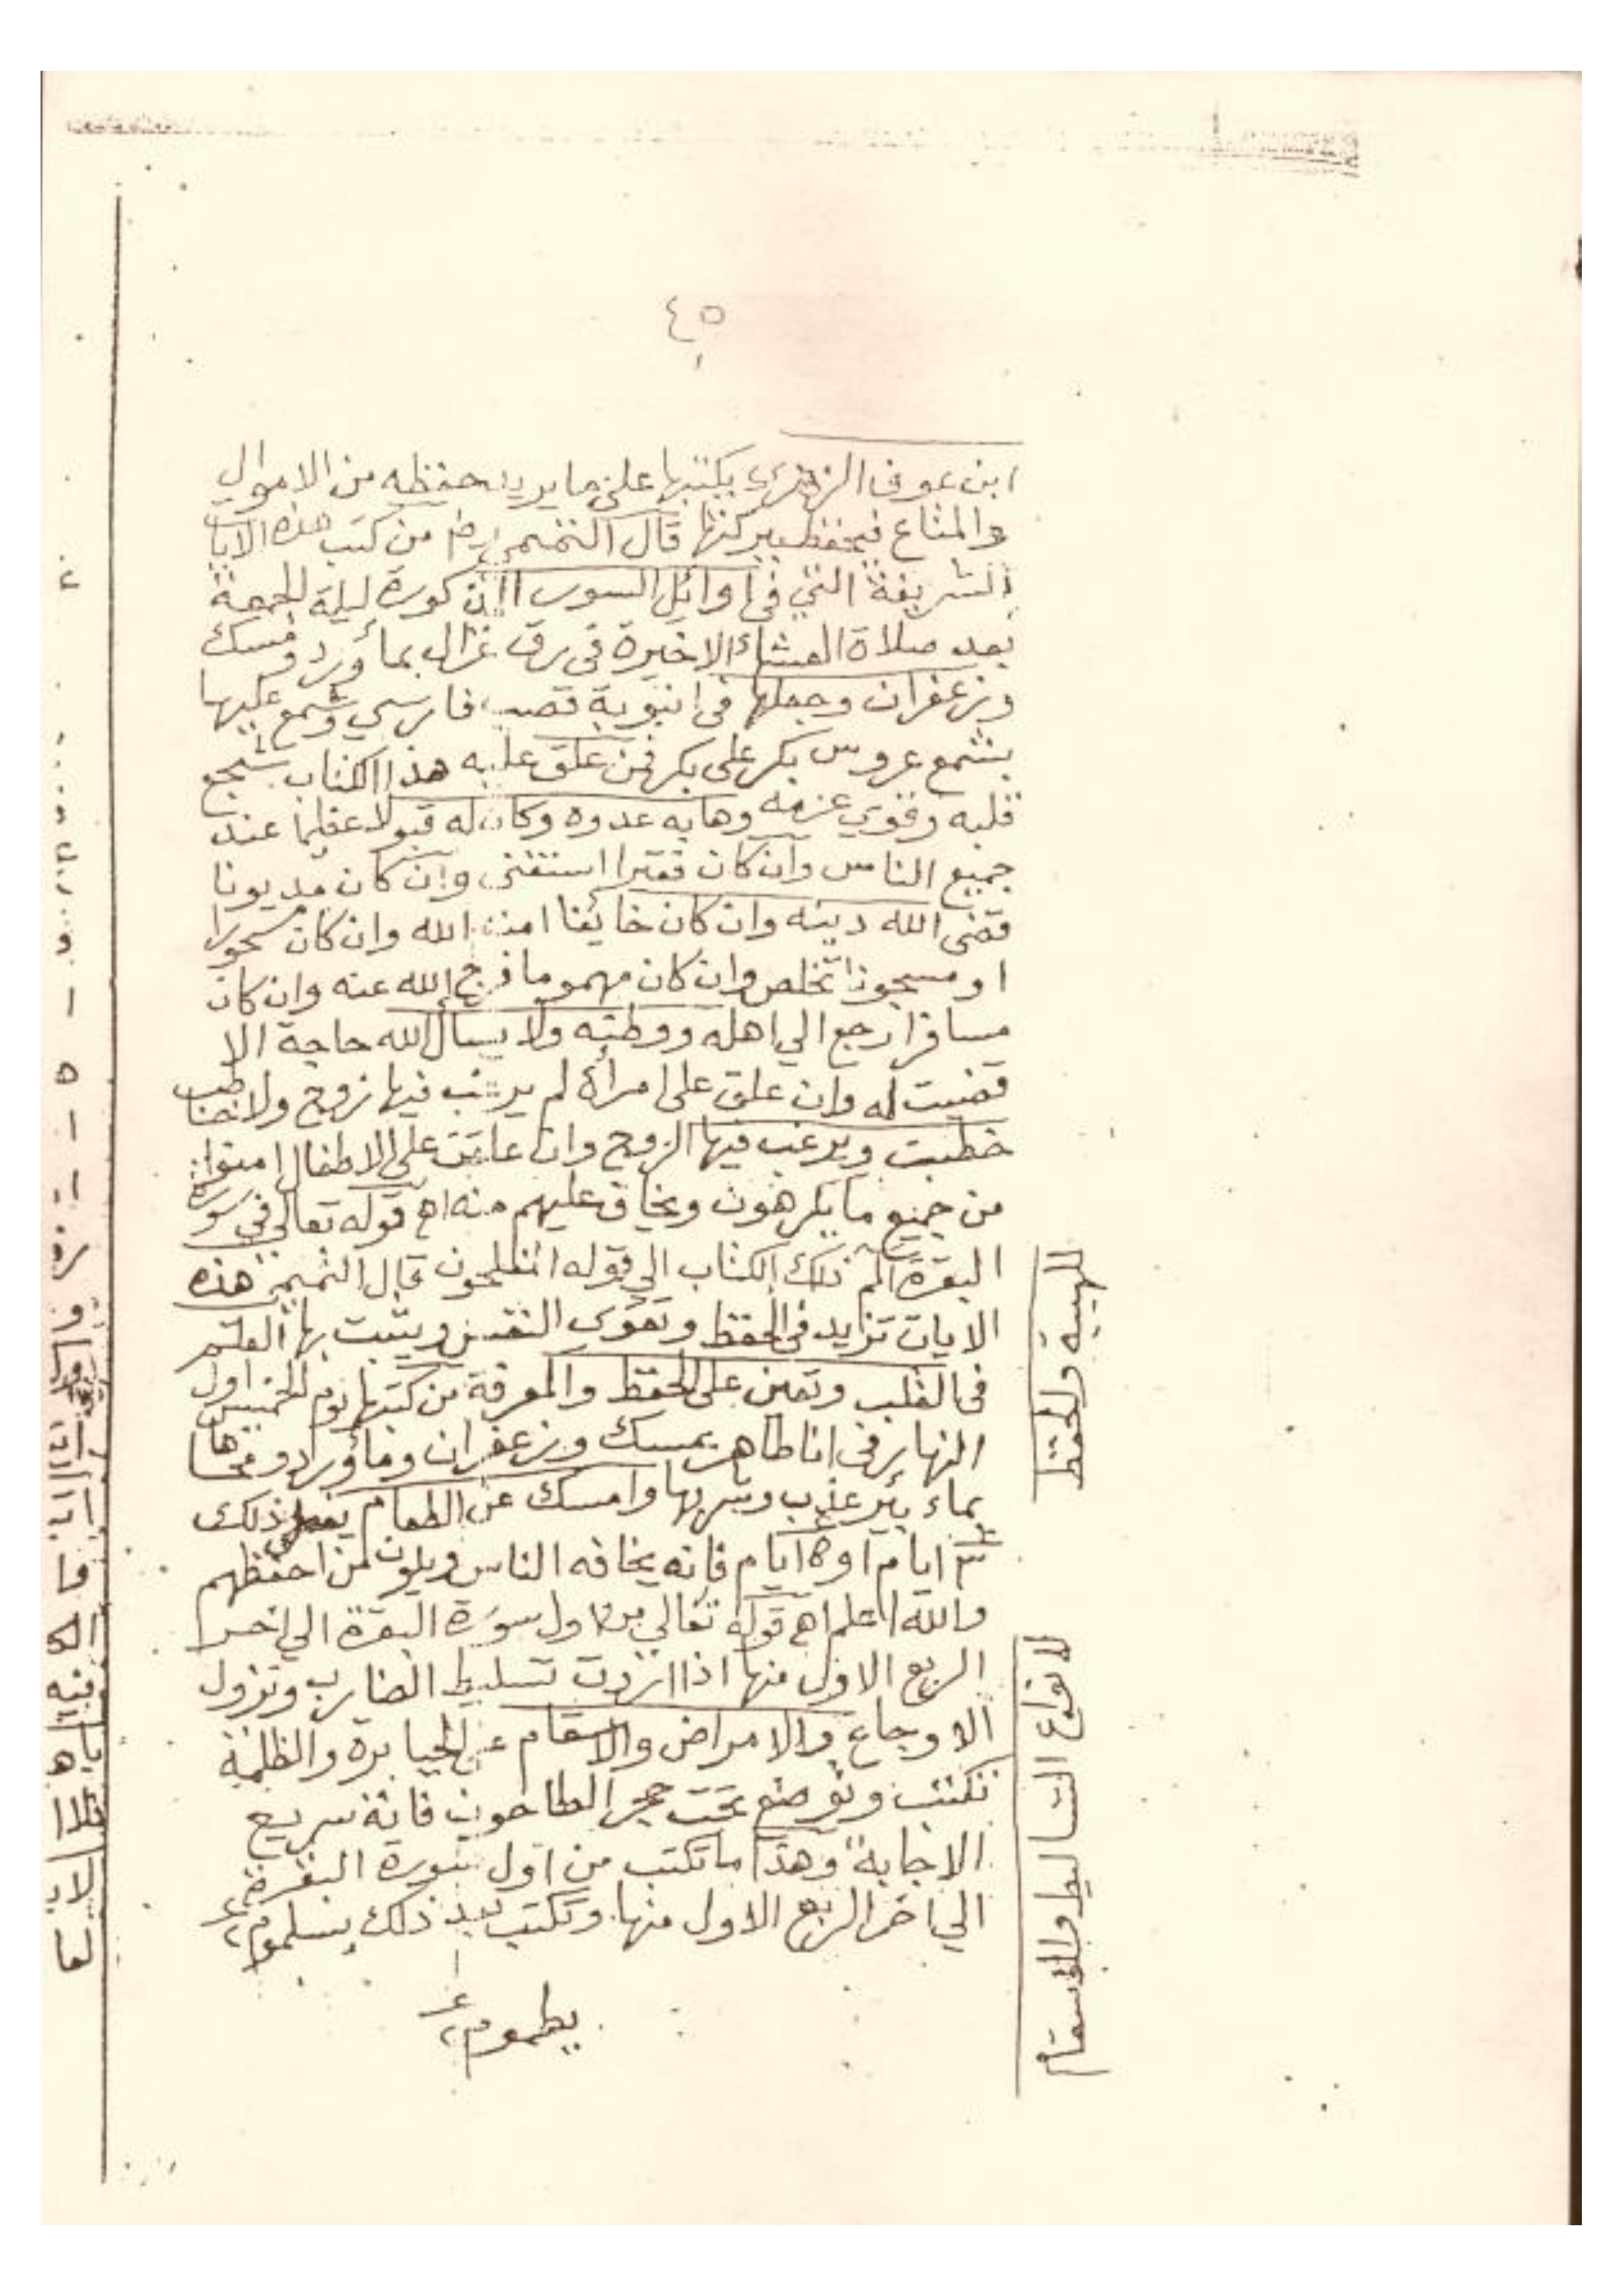 ٤٥
ابن عوف الزهري يكتبها على ما يريد حفظه من الاموال
والمتاع فيحفظ ببركتها قال التميمي رض من كتب هذه الايات
الشريفة التي في اوائل السور ليلة الجمعة
بعد صلاة العشاء الاخيرة في رق غزال بماورد ومسك
وزعفران وجعلها في انبوبة قصب فارسي وشمع عليها
بشمع عروس بكر على بكر فمن علق عليه هذا الكتاب شجع
قلبه وقوي عزمه وهابه عدوه وكان له قبولا عظيما عند
جميع الناس وان كان فقيرا استغنى وان كان مديونا
قضى الله دينه وان كان خائفا امنه الله وان كان مسحورا
او مسجونا تخلص وان كان مهموما فرج الله عنه وان كان
مسافرا رجع الي اهله ووطنه ولا يسأل الله حاجة الا
قضيت له وان علق على امرأة لم يرغب فيها زوج ولا خاطب
خطبت ويرغب فيها الزوج وان علقت على الاطفال امنوا
من جميع ما يكرهون ويخاف عليهم منه اه قوله تعالي في سورة
البقرة الم ذلك الكتاب الي قوله المفلحون قال التميمي هذه
الايات تزيد في الحفظ وتقوي النفس ويثبت بها العلم
في القلب وتعين على الحفظ والمعرفة من كتبها يوم الخميس اول
النهار في انا طاهر بمسك وزعفران وماورد ومحاها
بماء بئر عذب وشربها وامسك عن الطعام يفعل ذلك
٣ ايام او ٥ ايام فانه يخافه الناس ويكون من احفظهم
والله اعلم اه قوله تعالي من اول سورة البقرة الي اخر
الربع الاول منها اذا اردت تسليط الضارب ونزول
الاوجاع والامراض والاسقام على الجبابرة والظلمة
تكتب وتوضع تحت حجر الطاحون فانه سريع
الاجابة وهذا ما تكتب من اول سورة البقرة
الي اخر الربع الاول منها وتكتب بعد ذلك بسلموم ٢
يطموم ٢
للهيبة والحفظ
لانواع التساليط والاسقام